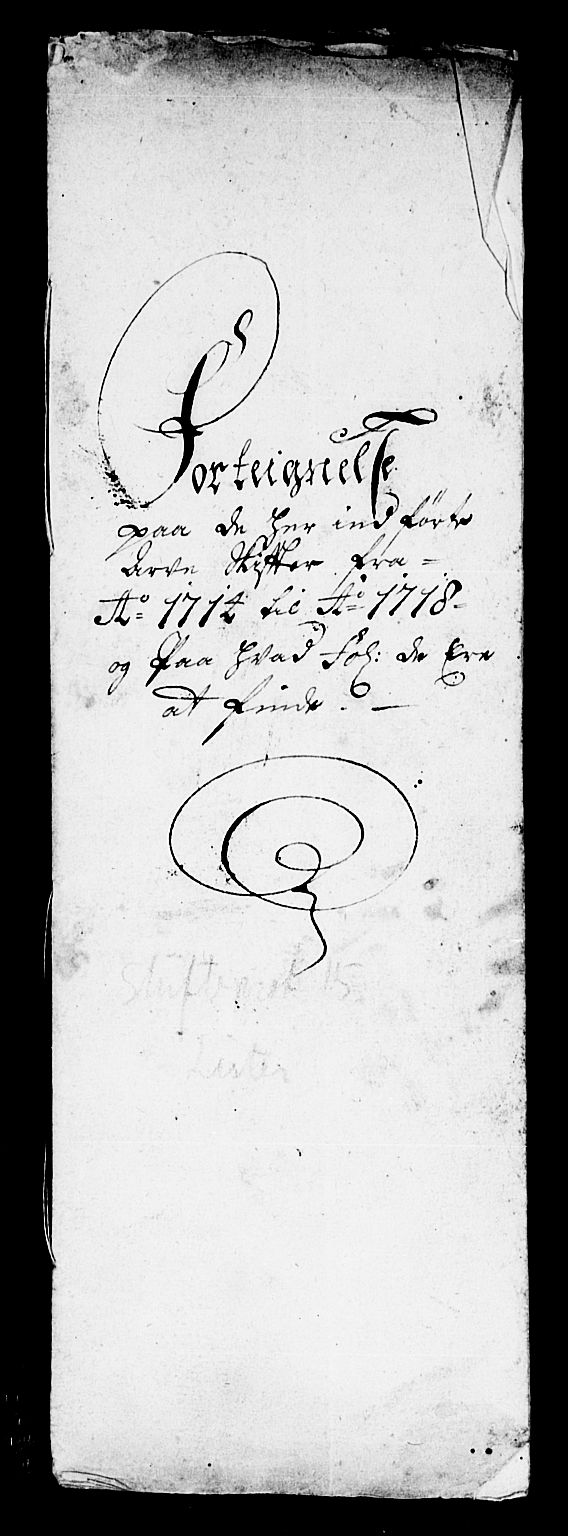 Forteignelse
paa de her ind förte
Arve Skifter fra =
Ao 1714 til Ao 1718-
og Paa hvad Fol: de Ere
at finde. —
15
Lister